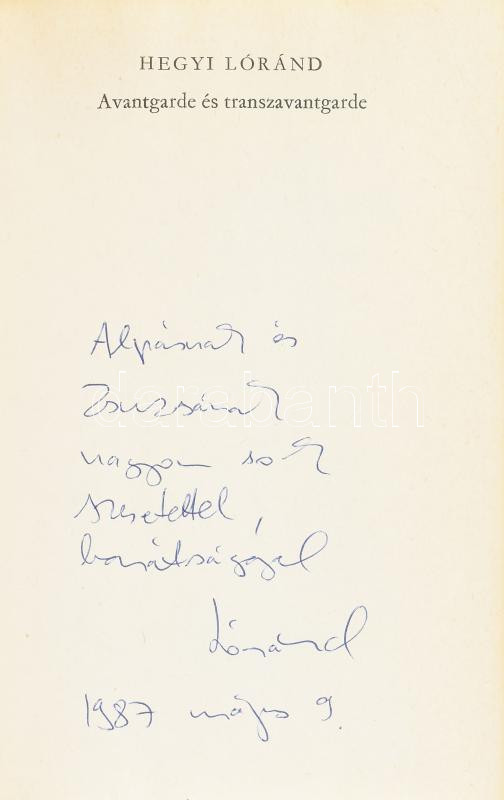 HEGYI LÓRÁND
Avantgarde és transzavantgarde
Alpárnak és
Zsuzsának
darabanth
nagyon sok
szeretettel,
barátsággal
Lóránd
1987 május 9.